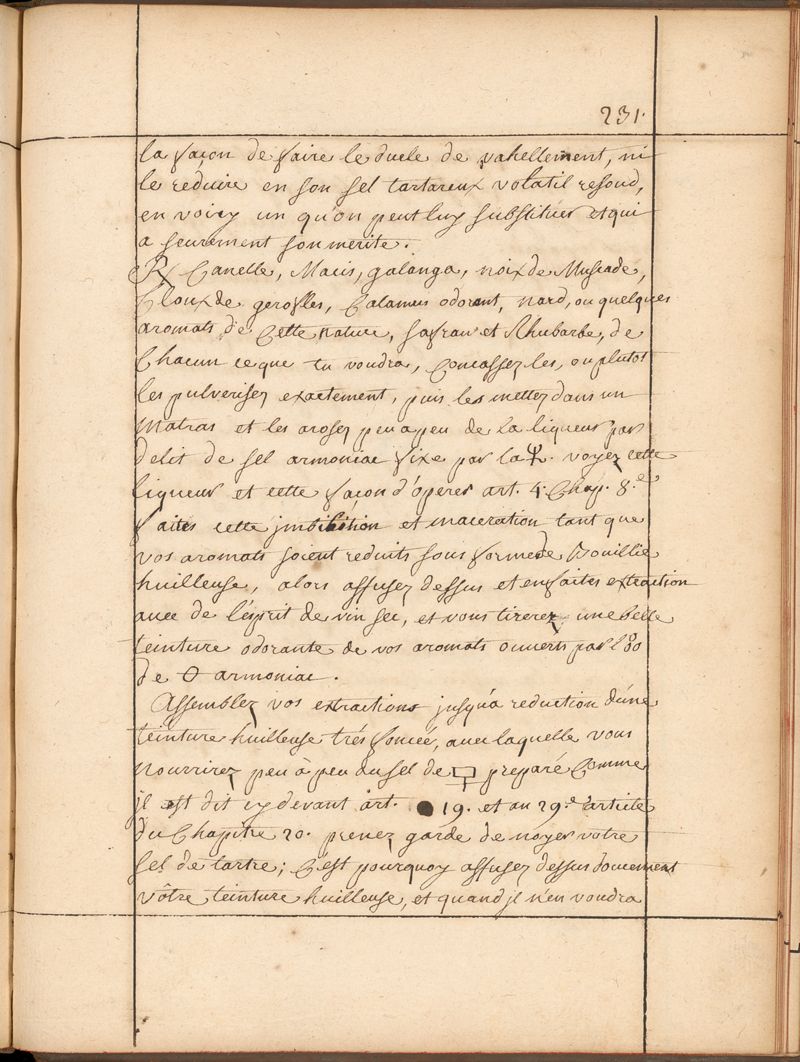 231.
la façon de faire le duele de vahellement, ni
le reduire en son sel tartareux volatil resoud,
en voicy un qu'on peut luy substituer et qui
a seurement son merite.
℞ Canelle, Macis, galanga, noix de Muscade,
Cloux de gerofles, Calamus odorant, nard, ou quelques
aromats de Cette nature, safran et Rhubarbe, de
Chacun ce que tu voudra, Concassez les, ou plutot
les pulverisez exactement, puis les mettez dans un
Matras et les arosez peu a peu de La liqueur par
delit de sel armoniac fixe par la . voyez cette
liqueur et cette façon d'operer art. 4. Chap. 8.e
faites cette jmbibition et maceration tant que
vos aromats soient reduits sous forme de Bouillie
huilleuse, alors affusez dessus et en faites extraction
avec de l'esprit de vin sec, et vous tirerez une belle
teinture odorante de vos aromats ouverts par l'
de armoniac.
Assemblez vos extractions jusqu'a reduction d'une
teinture huilleuse trés foncée, avec laquelle vous
nourrirez peu à peu du sel de preparé Comme
jl est dit cy devant art. 19. et au 29.e article
du Chapitre 20. prenez garde de noyer votre
sel de tartre; C'est pourquoy affusez dessus doucement
vôtre teinture huilleuse, et quand jl n'en voudra